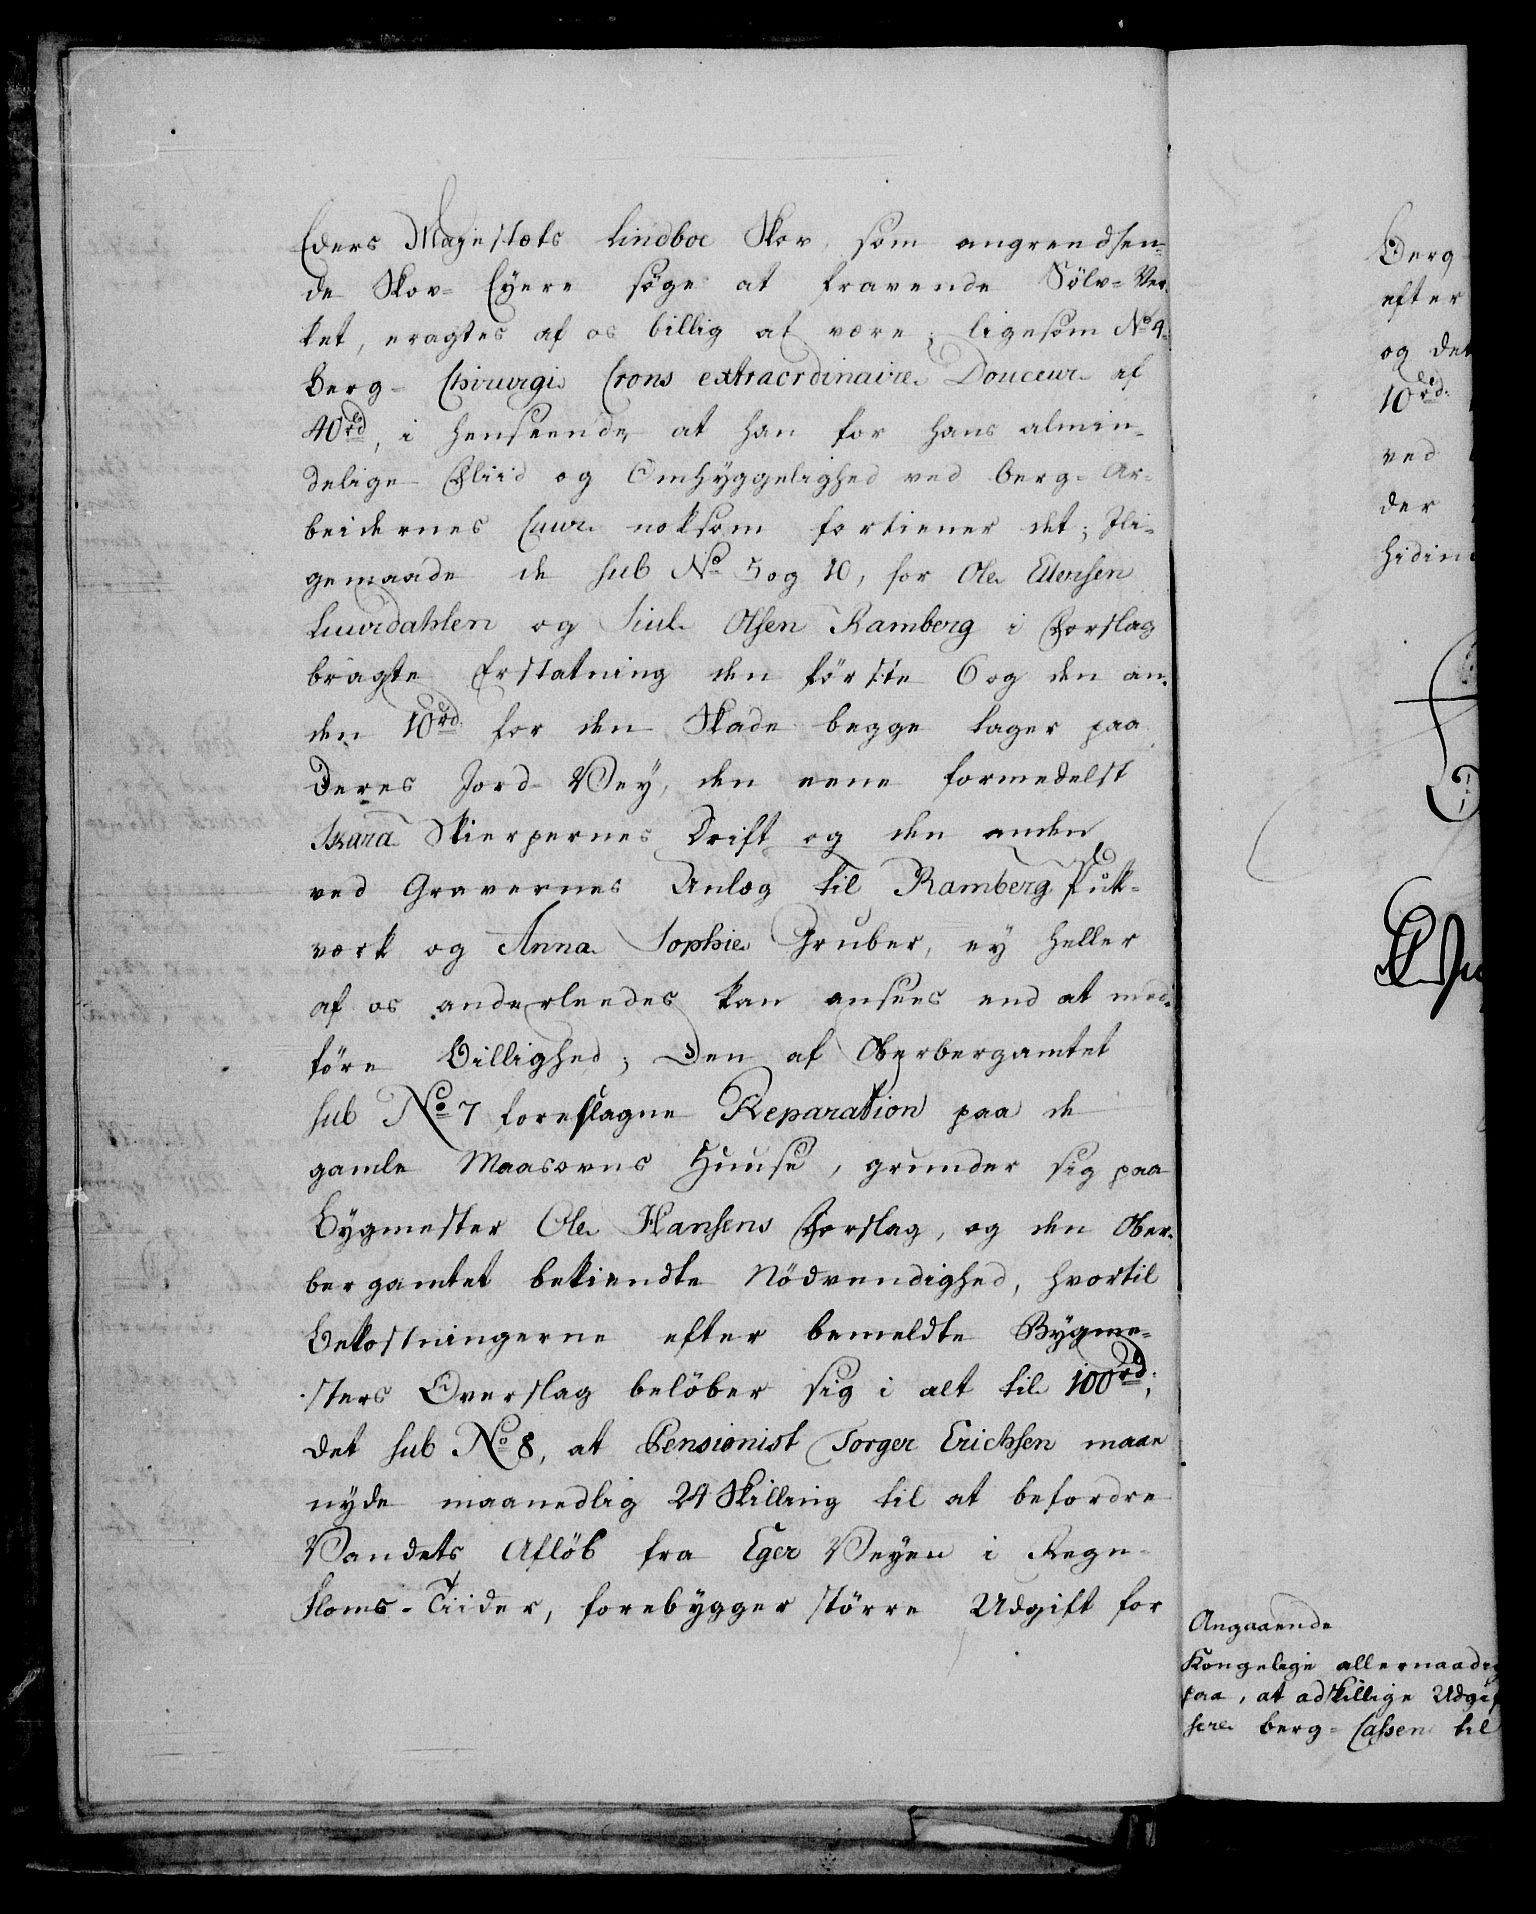 Eders Mayestæts Lindboe Skov, som angrendsen-
de Skov-Eyere søge at fravende Sölv-Ver-
ket, eragtes af os billig at være; ligesom No 4.
Berg-Chirurgi Crons extraordinaire Douceur af
40rd, i henseende at han for hans almin-
delige Fliid og Omhyggelighed ved Berg-Ar-
beidernes Cuur noksom fortiener det; Ili-
gemaade de sub No 5 og 10, for Ole Ellensen
Luurdahlen og Siul Olsen Ramberg i Forslag
bragte Erstatning den förste 6 og den an-
den 10rd for den Skade begge tager paa
Deres Jord-Vey, den eene formedelst
Skara Skierpernes Drift og den anden
ved Gravernes Anlæg til Ramberg Puk-
værk og Anna Sophie Gruber, ey heller
af os anderleedes kan ansees end at med-
føre Billighed; Den af Oberbergamtet
sub No 7 foreslagne Reparation paa de
gamle Maasovns Huuse, grunder sig paa
Bygmester Ole Hansens Forslag, og den Ober-
bergamtet bekiendte Nödvendighed, hvortil
Bekostningerne efter bemeldte Bygme-
sters Overslag belöber sig i alt til 100rd;
Det sub No 8, at Pensionist Torger Erichsen maae
nyde maanedlig 24 Skilling til at befordre
Vandets Aflöb fra Eger Veyen i Regn-
floms-Tiider, forebygger större Udgift for
Berg
efter
og det
10rd
ved
der
Angaaende
Kongelige allernaadig
paa, at adskillige Udgif
Berg-Cassen til